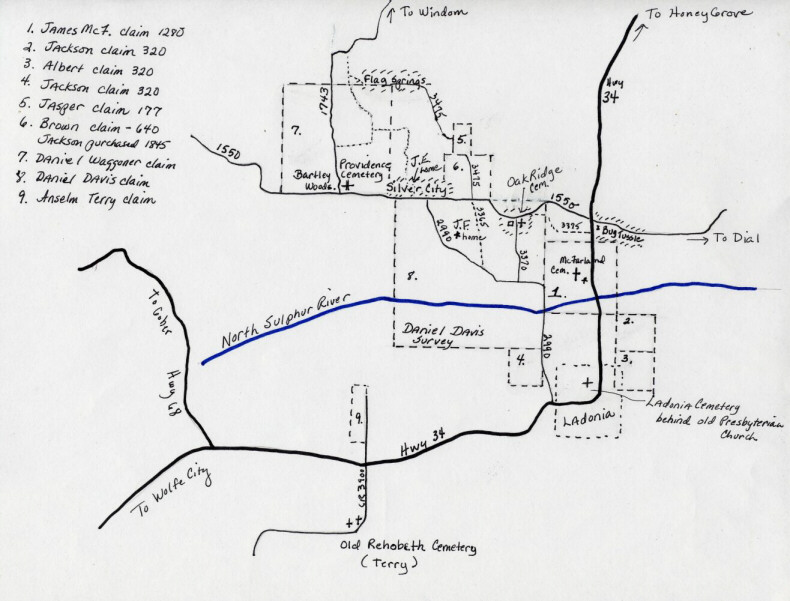 1. James McF. claim 1280
2. Jackson claim 320
3. Albert claim 320
4. Jackson claim 320
5. Jasper claim 177
6. Brown claim - 640
Jackson purchased 1845
7. Daniel Waggoner claim
8. Daniel Davis claim
9. Anselm Terry claim
To Windom
To Honey Grove
Hwy
34
Flag Springs
1743
3475
7.
5.
1550
Bartley
Woods.
Providence
Cemetery
J.E.
home
6.
3475
Silver City
Oak Ridge
Cem.
1550
2990
3365
J.F.
home
3370
3375
Bug Tussle
To Dial
McFarland
Cem.
8.
1.
To Gober
Hwy 68
North Sulphur River
Daniel Davis
Survey
2990
2.
3.
4.
9.
Ladonia
Ladonia Cemetery
behind old Presbyterian
Church
Hwy 34
To Wolfe City
CR 3900
Old Rehobeth Cemetery
(Terry)